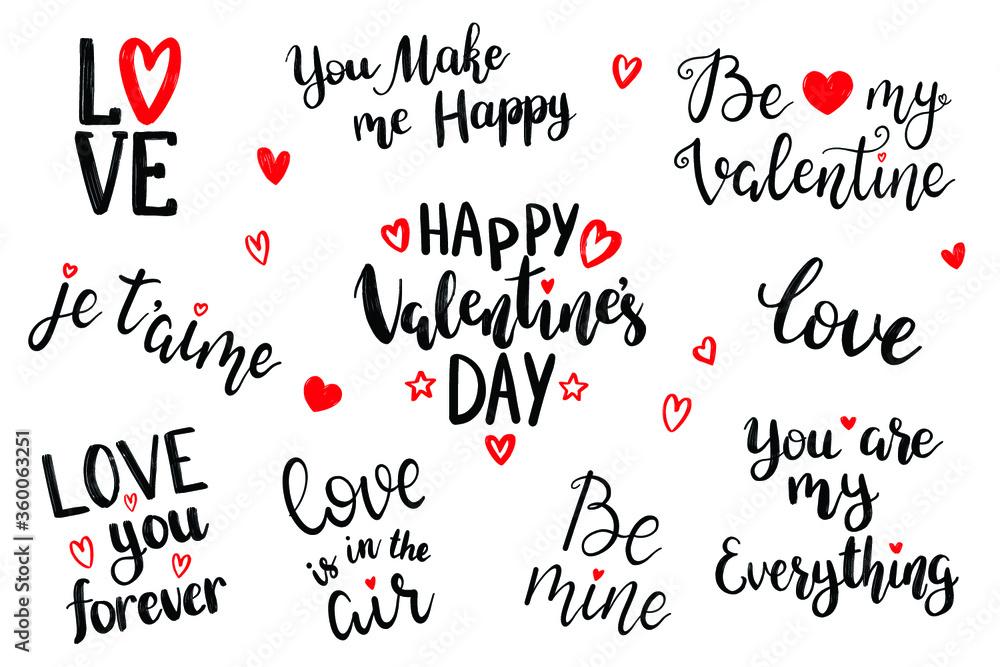 L VE
You Make
me Happy
Be my
Valentine
HAPPY
Valentine's
DAY
je t'aime
love
LOVE
you
forever
love
is in the
air
Be
mine
You are
my
Everything
Adobe Stock | #360063251